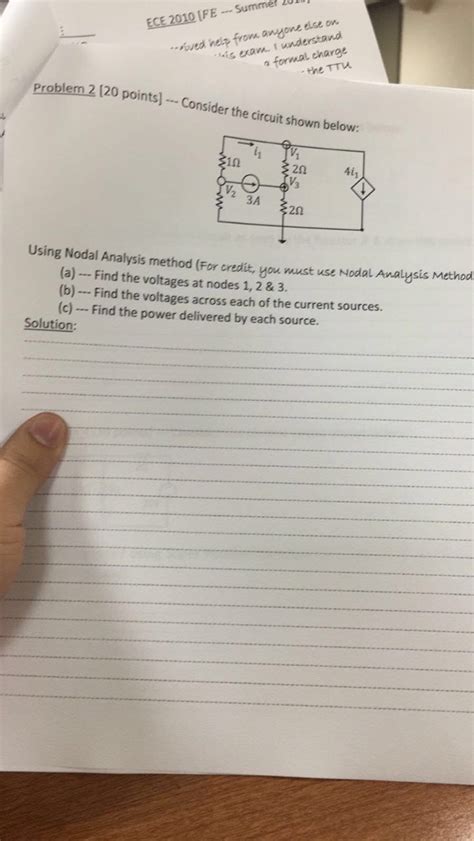 ECE 2010 [FE --- Summer
help from anyone else on
exam. I understand
a formal charge
the TTU
Problem 2 [20 points] --- Consider the circuit shown below:
i1 V1
1Ω 2Ω 4i1
V2 V3
3A 2Ω
Using Nodal Analysis method (For credit, you must use Nodal Analysis Method
(a) --- Find the voltages at nodes 1, 2 & 3.
(b) --- Find the voltages across each of the current sources.
(c) --- Find the power delivered by each source.
Solution: